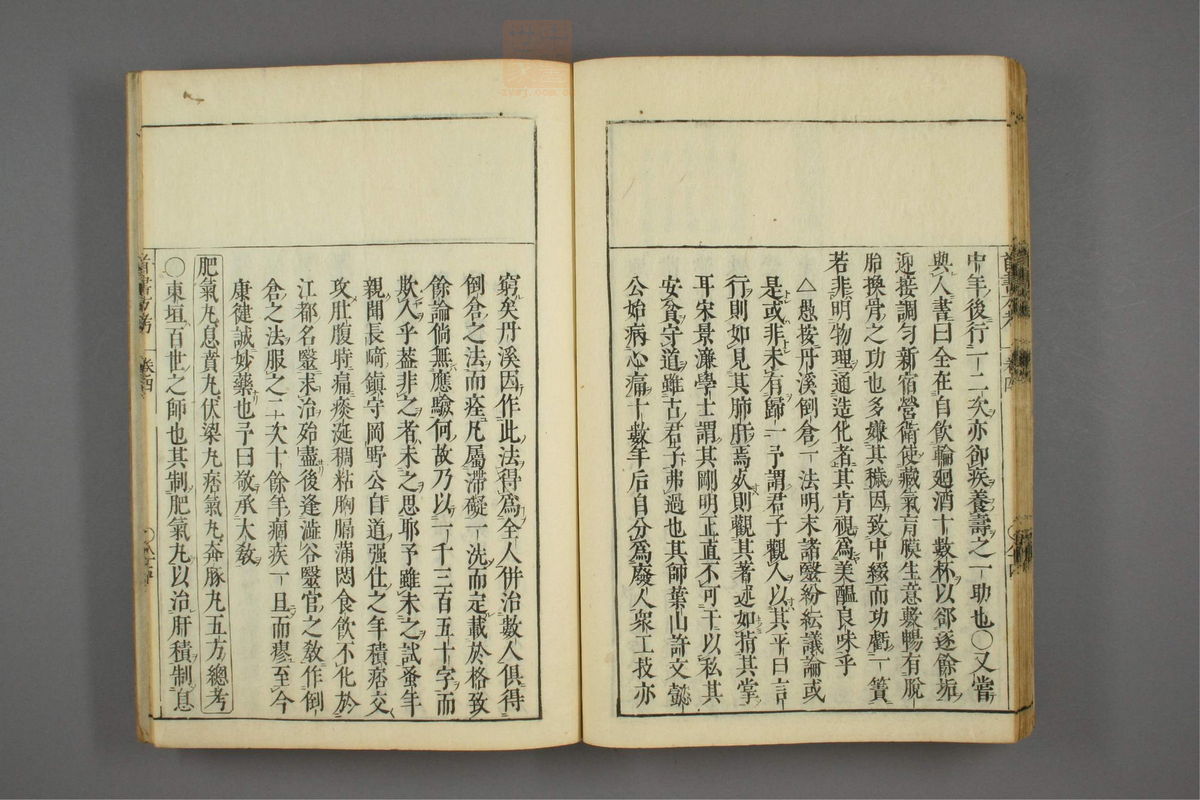 中年後行一二次亦卻疾養壽之一助也〇又嘗
與人書曰全在自飲輪廻酒十數杯以郤逐餘垢
迎接調勻新宿營衛使藏氣肓膜生意敷暢有脫
胎換骨之功也多嫌其穢因致中綴而功虧一簣
若非明物理通造化者其肯視爲美醞良味乎
△愚按丹溪倒倉一法明末諸醫紛紜議論或
是或非未有歸一予謂君子觀人以其平日言
行則如見其肺肝焉故則觀其著述如指其掌
耳宋景濂學士謂其剛明正直不可干以私其
安貧守道雖古君子弗過也其師葉山許文懿
公始病心痛十數年后自分爲廢人衆工技亦
窮矣丹溪因作此法得爲全人併治數人俱得
倒倉之法而痊凡屬滯礙一洗而定載於格致
餘論倘無應驗何故乃以一千三百五十字而
欺人乎蓋非之者未之思耶予雖未之試蚤年
親聞長崎鎭守岡野公自道强仕之年積痞交
攻肚腹時痛痰涎稠粘胸膈滿悶食飲不化於
江都名醫求治殆盡後逢澁谷醫官之敎作倒
倉之法服之二十次十餘年痼疾一旦而瘳至今
康健誠妙藥也予曰敬承大敎
肥氣丸息賁丸伏梁丸痞氣丸奔豚丸五方總考
〇東垣百世之師也其制肥氣丸以治肝積制息
卷四